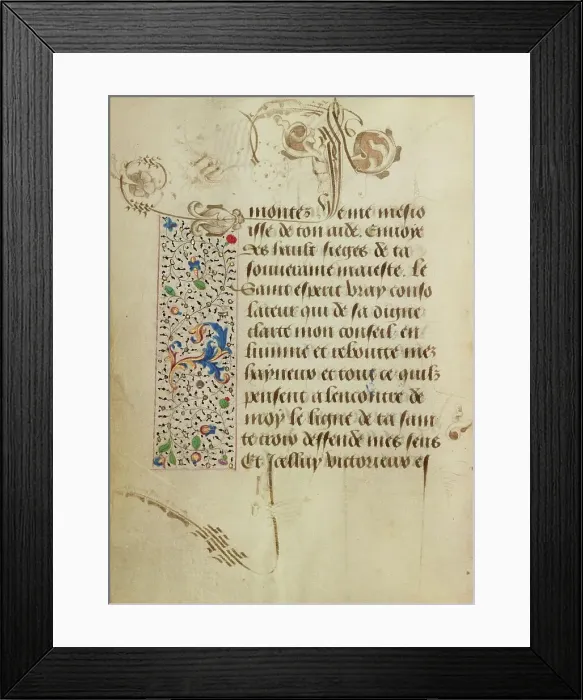 montez Je me mesio
isse de ton aide. Enuoye
des hault sieges de ta
souueraine maieste. Le
Saint esperit vray conso
lateur qui de sa digne
clarte mon conseil en
lumine et reboutte mes
hayneux et tout ce quilz
pensent a lencontre de
moy le signe de ta sain
te croix deffende mes sens
Et Icelluy victorieux es